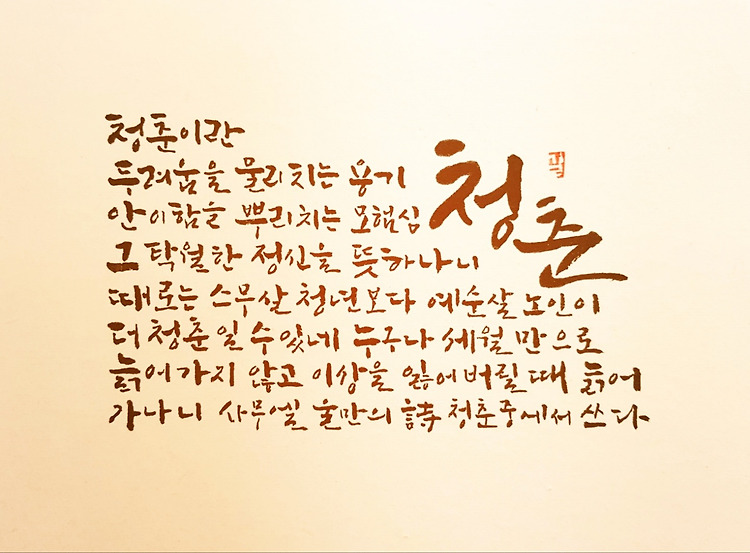 청춘
청춘이란
두려움을 물리치는 용기
안이함을 뿌리치는 모험심
그 탁월한 정신을 뜻하나니
때로는 스무살 청년보다 예순살 노인이
더 청춘일 수 있네 누구나 세월만으로
늙어가지 않고 이상을 잃어버릴 때 늙어
가나니 사무엘 울만의 詩 청춘중에서 쓰다